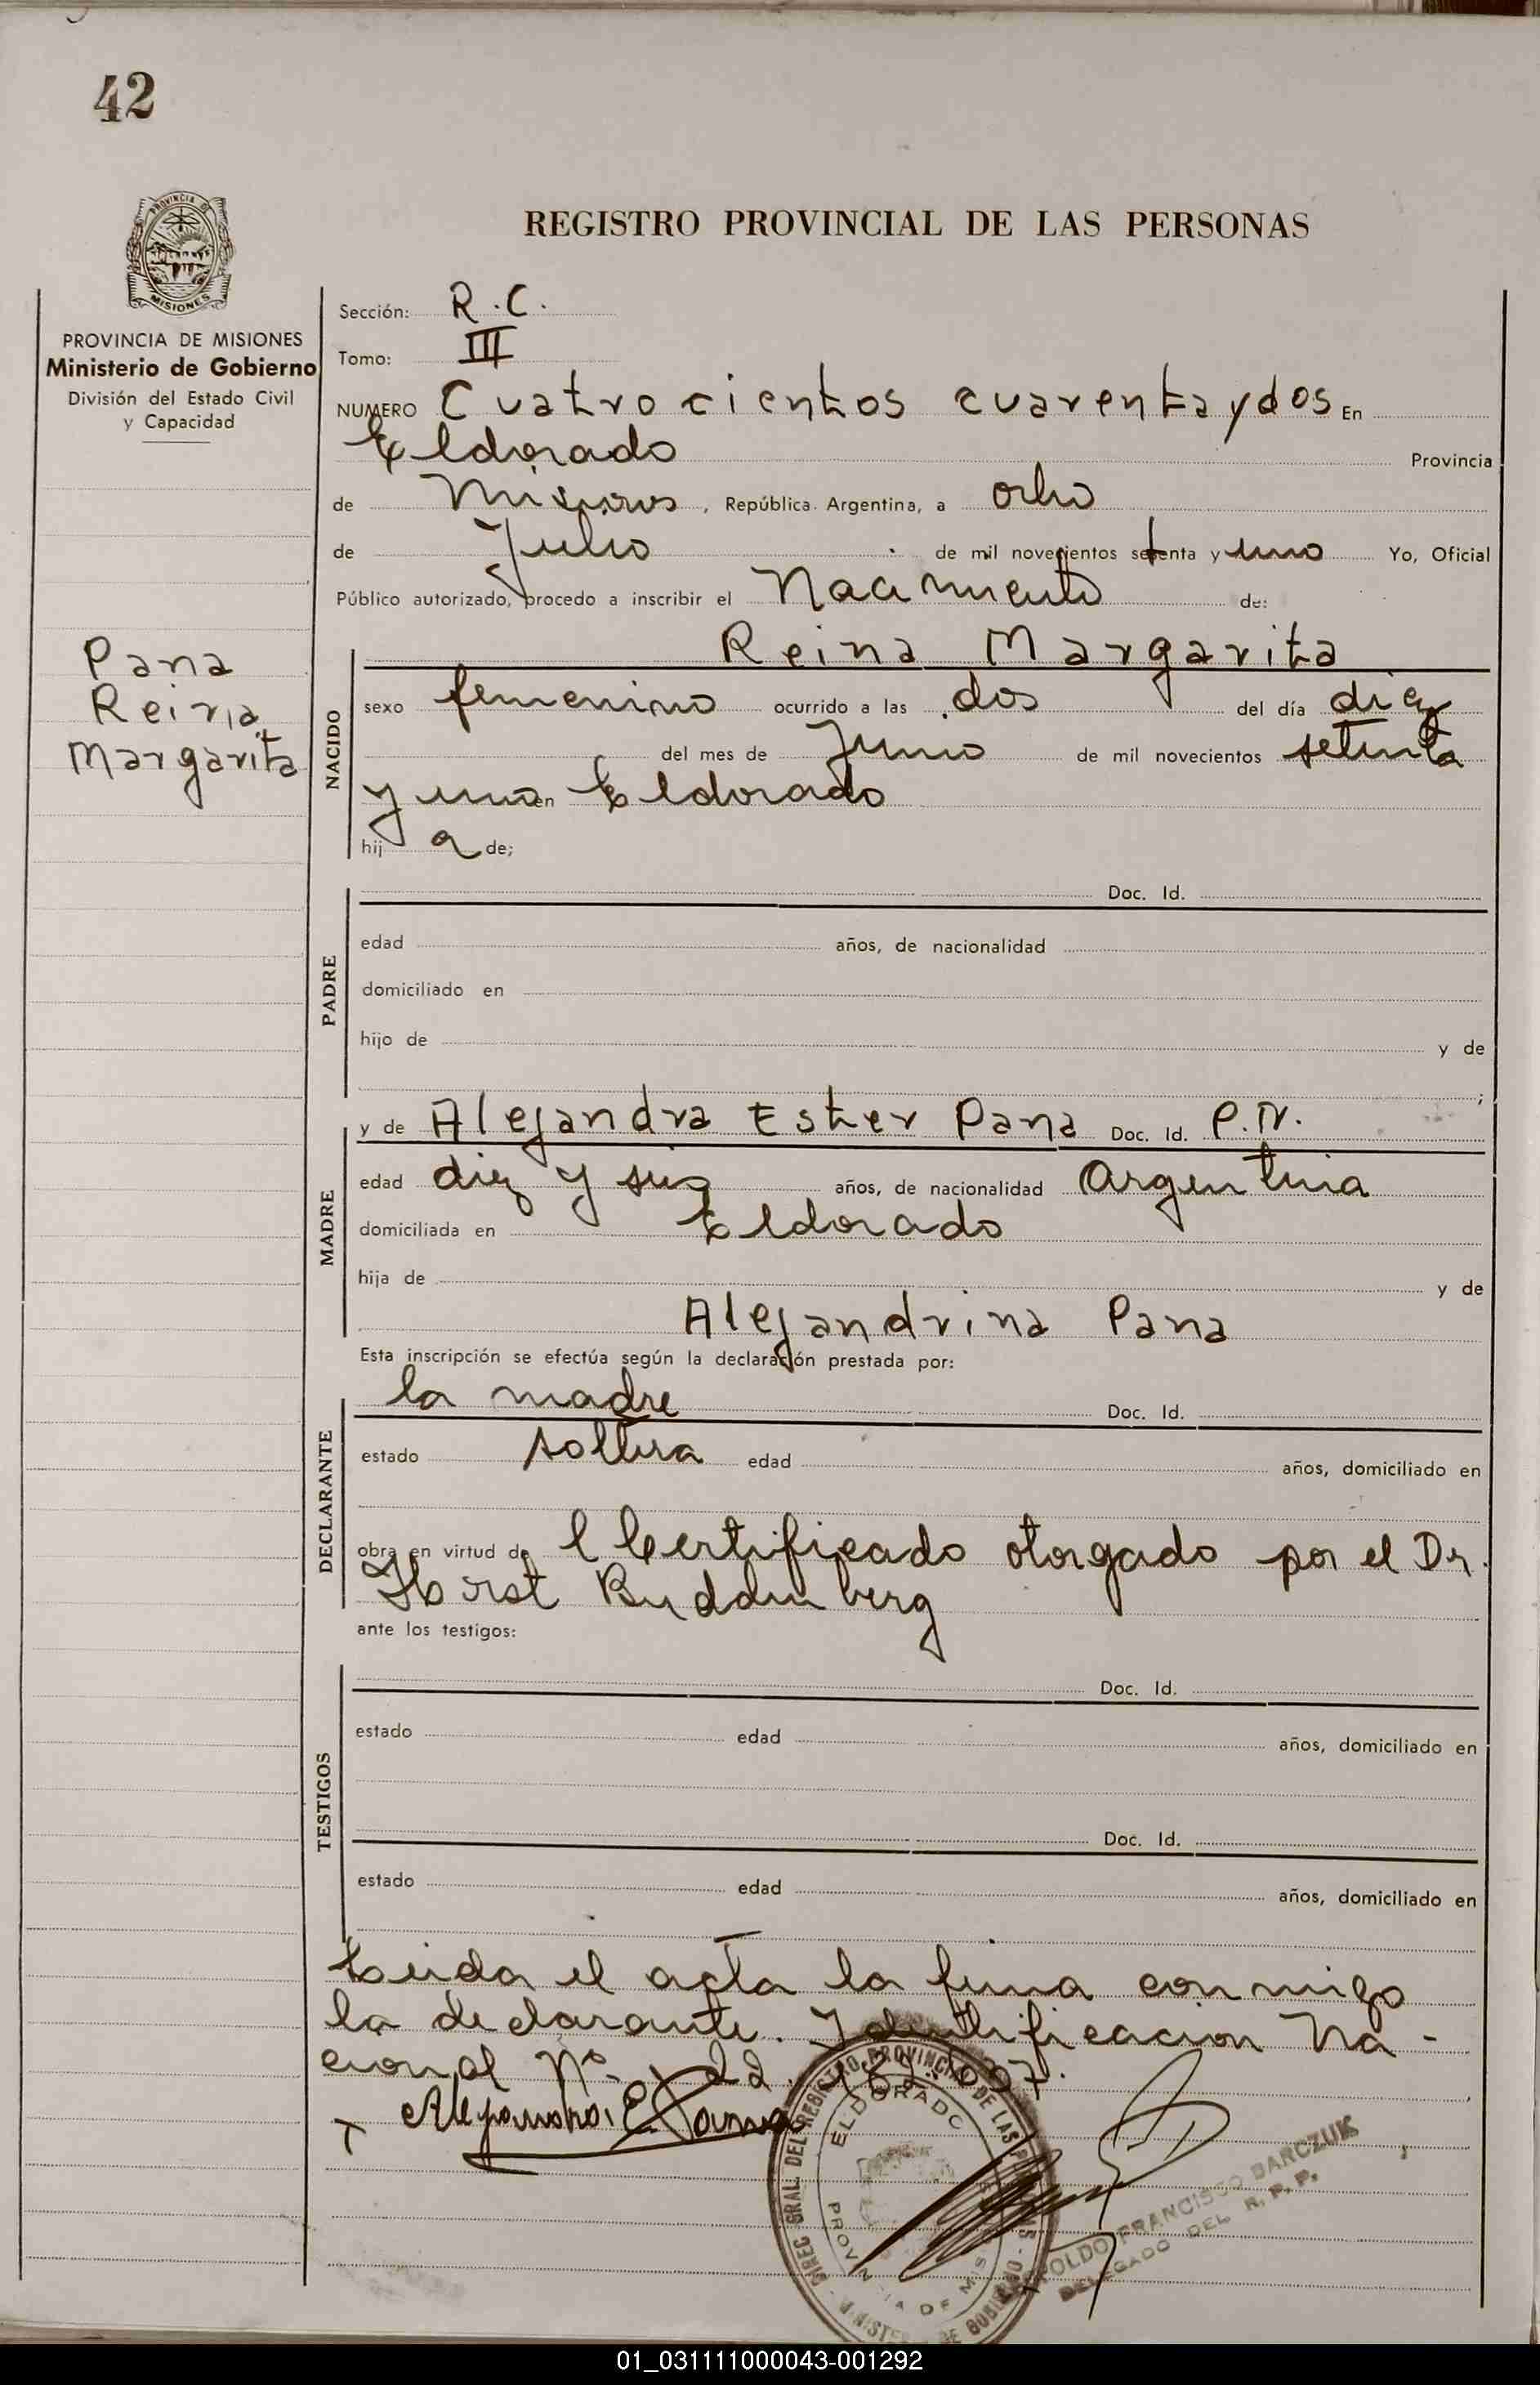 42
PROVINCIA DE
MISIONES
REGISTRO PROVINCIAL DE LAS PERSONAS
PROVINCIA DE MISIONES
Ministerio de Gobierno
División del Estado Civil
y Capacidad
Pana
Reina
Margarita
Sección: R.C.
Tomo: III
NUMERO Cuatrocientos cuarenta y dos En
Eldorado Provincia
de Misiones, República Argentina, a ocho
de Julio de mil novecientos setenta y uno Yo, Oficial
Público autorizado, procedo a inscribir el Nacimiento de:
Reina Margarita
NACIDO
sexo femenino ocurrido a las dos del día diez
del mes de Junio de mil novecientos setenta
y uno en Eldorado
hij a de;
Doc. Id.
PADRE
edad años, de nacionalidad
domiciliado en
hijo de y de
;
y de Alejandra Ester Pana Doc. Id. P.N.
MADRE
edad diez y seis años, de nacionalidad Argentina
domiciliada en Eldorado
hija de y de
Alejandrina Pana
Esta inscripción se efectúa según la declaración prestada por:
la madre Doc. Id.
DECLARANTE
estado soltera edad años, domiciliado en
obra en virtud de l Certificado otorgado por el Dr.
Horst Buddenberg
ante los testigos:
Doc. Id.
TESTIGOS
estado edad años, domiciliado en
Doc. Id.
estado edad años, domiciliado en
Leida el acta la firma conmigo
la declarante. Identificacion Na-
cional Nº 22.
Alejandra E Pana
DIREC GRAL. DEL REGISTRO PROVINCIAL DE LAS PERSONAS
ELDORADO
PROVINCIA DE MIS
MINISTERIO DE GOBIERNO
FRANCISCO BARCZUK
DELEGADO DEL R.P.P.
01_031111000043-001292